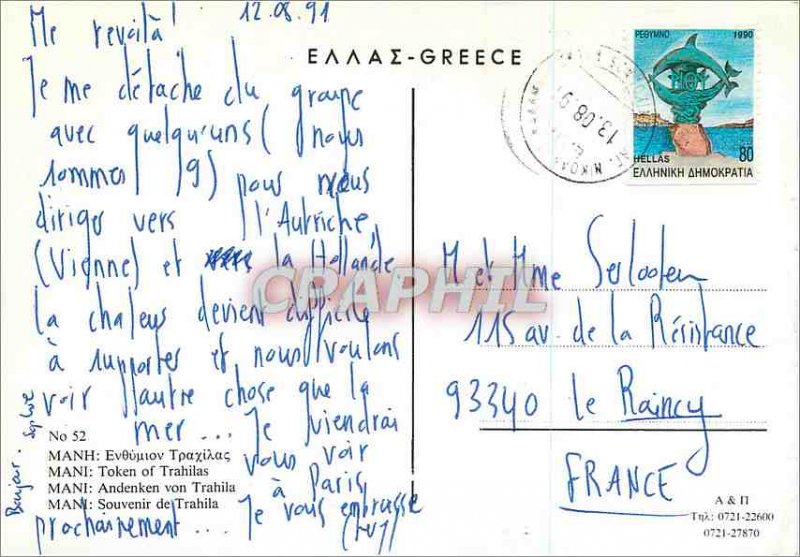 12.08.91
Me revoilà!
Je me détache du groupe
avec quelqu'uns (nous
sommes 9) pour nous
diriger vers l'Autriche,
(Vienne) et la Hollande
la chaleur devient difficile
à supporter et nous voulons
voir autre chose que la
mer... Je viendrai
vous voir
à Paris
prochainement... Je vous embrasse
Bonjour
ΕΛΛΑΣ-GREECE
ΡΕΘΥΜΝΟ 1990
HELLAS 80
ΕΛΛΗΝΙΚΗ ΔΗΜΟΚΡΑΤΙΑ
13.08.91
ΑΓ. ΝΙΚΟΛ
CPAPHIL
M et Mme Serlooten
115 av. de la Résistance
93340 le Raincy
FRANCE
No 52
ΜΑΝΗ: Ενθύμιον Τραχίλας
MANI: Token of Trahilas
MANI: Andenken von Trahila
MANI: Souvenir de Trahila
Α & Π
Τηλ: 0721-22600
0721-27870